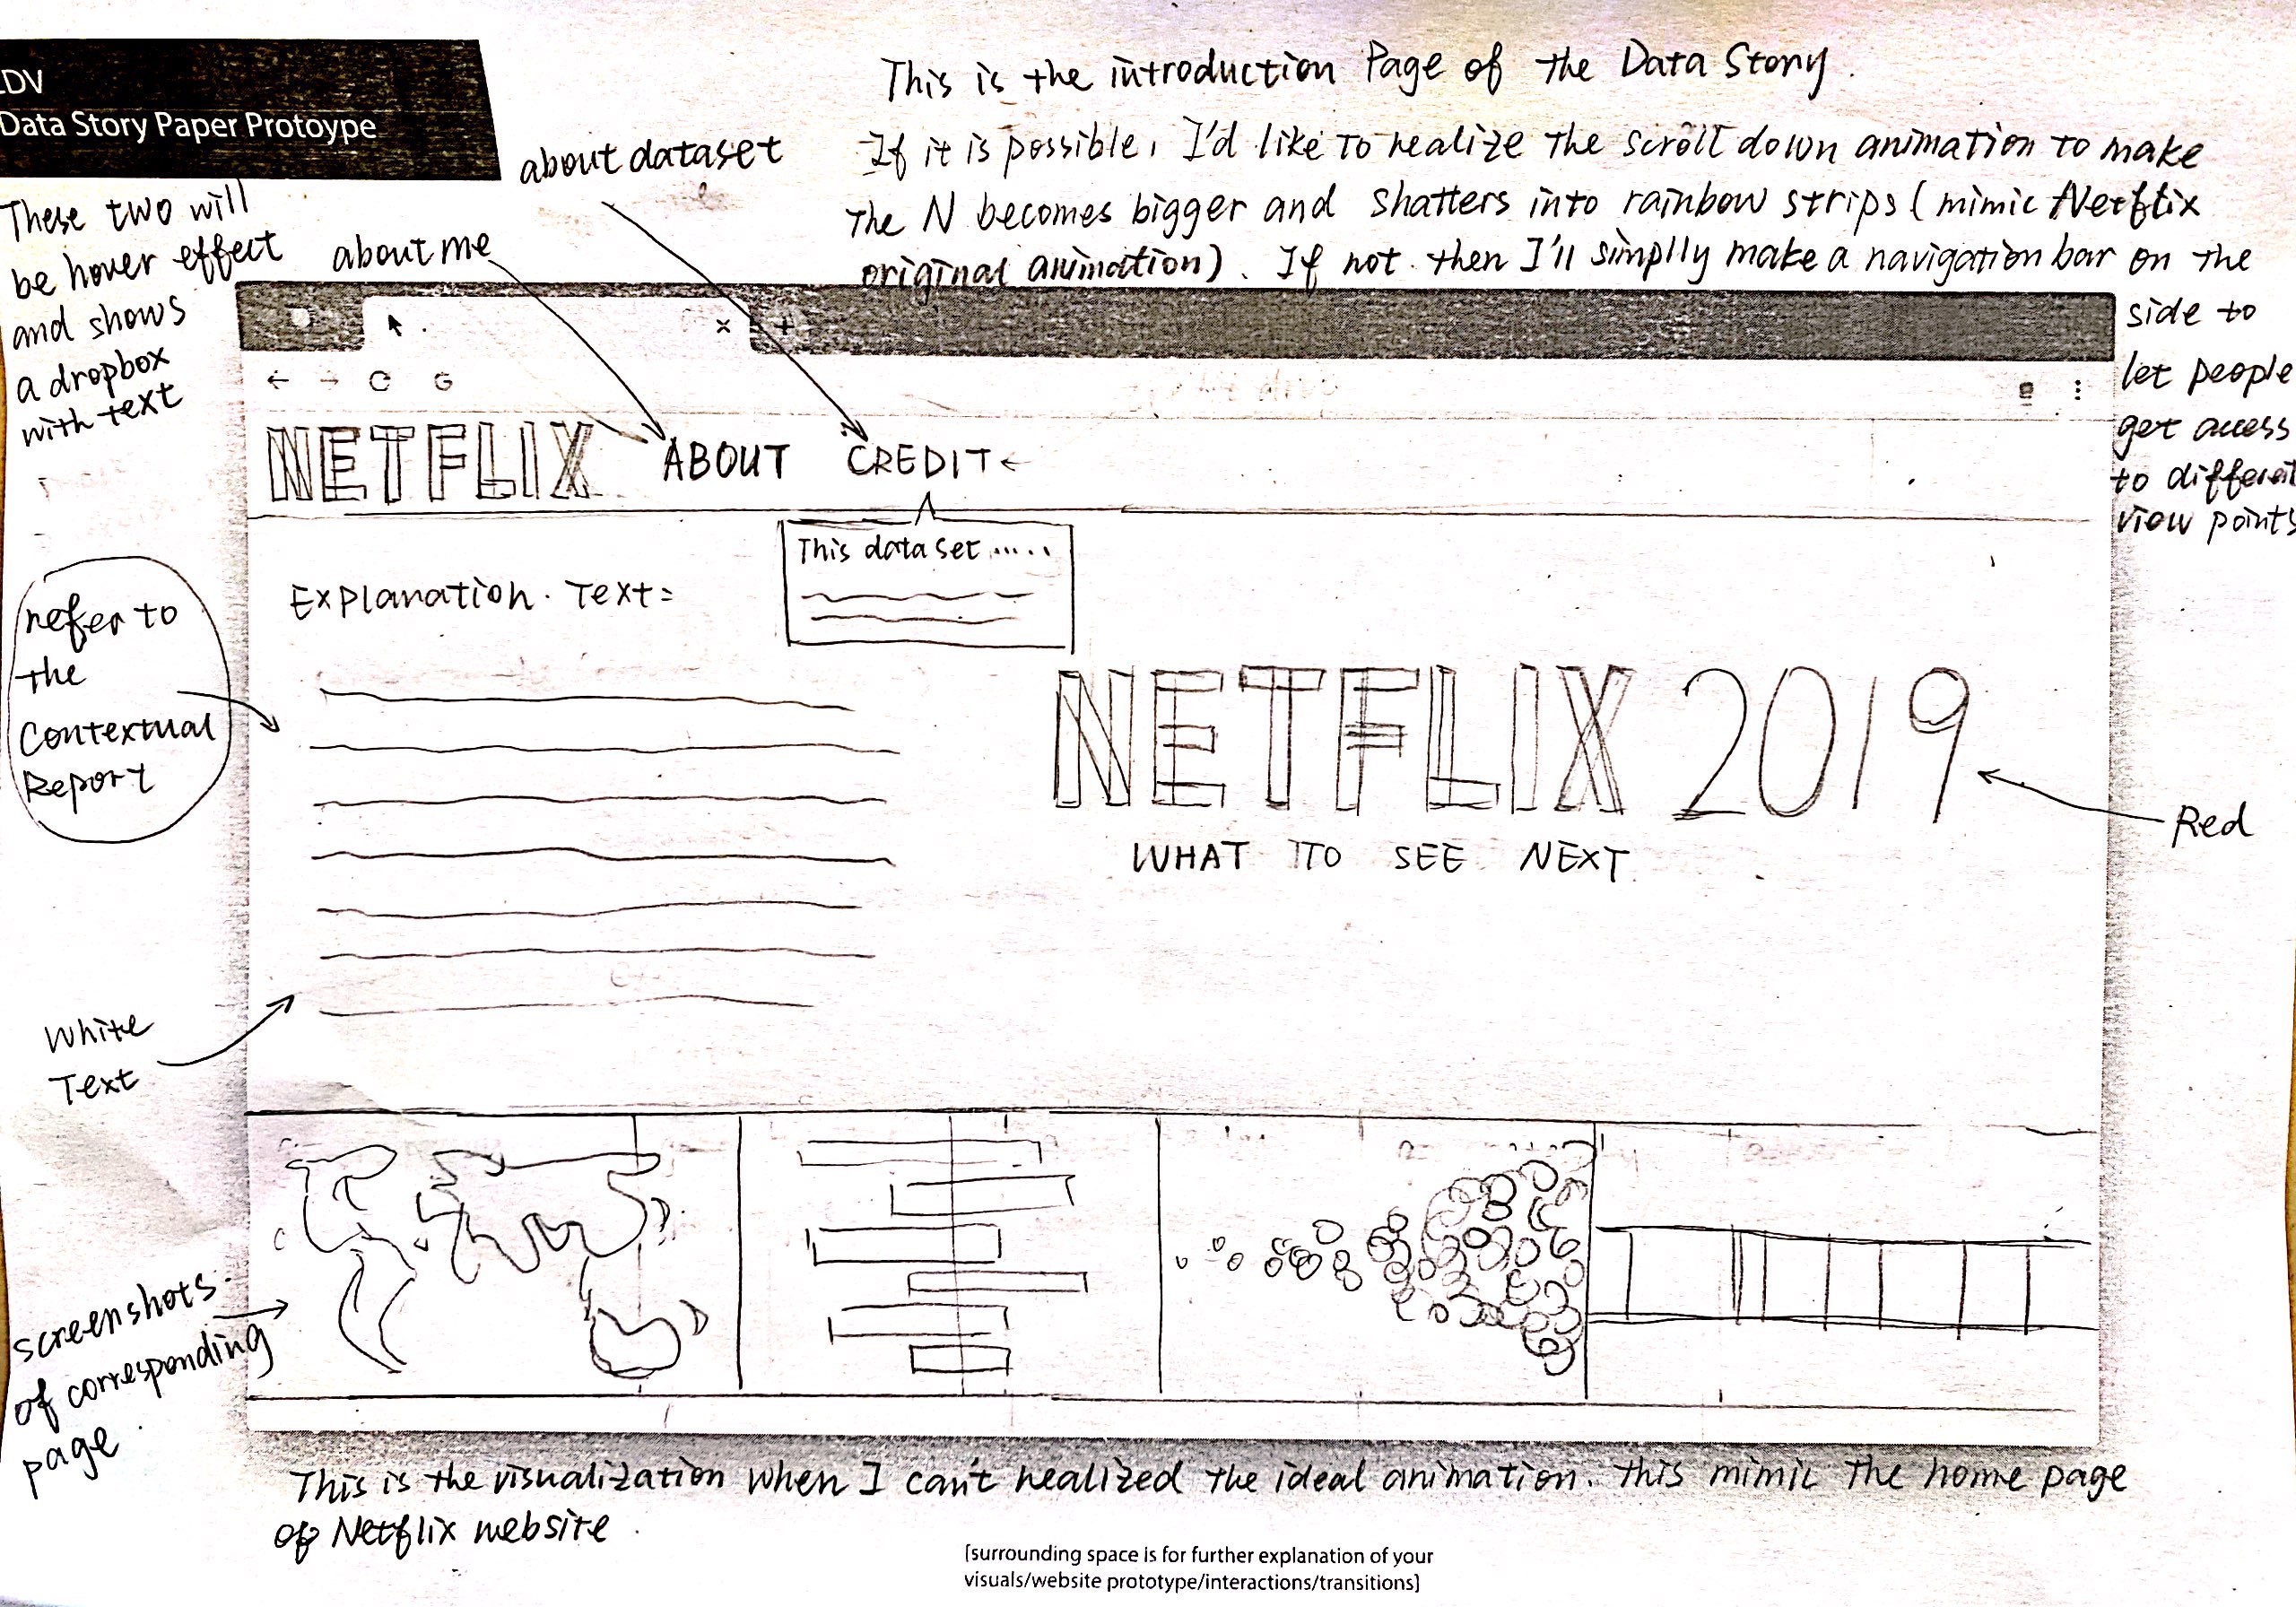 LDV
Data Story Paper Protoype
This is the introduction Page of the Data Story.
If it is possible, I'd like to realize the scroll down animation to make
the N becomes bigger and shatters into rainbow strips (mimic Netflix
original animation). If not. then I'll simplly make a navigation bar on the
side to
let people
get access
to different
view points
about dataset
about me
These two will
be hover effect
and shows
a dropbox
with text
NETFLIX ABOUT CREDIT
This dataset .....
Explanation. Text:
refer to
the
Contextual
Report
NETFLIX 2019
Red
WHAT TO SEE NEXT
White
Text
screenshots
of corresponding
page.
This is the visualization when I can't realized the ideal animation. this mimic the home page
of Netflix website.
[surrounding space is for further explanation of your
visuals/website prototype/interactions/transitions]